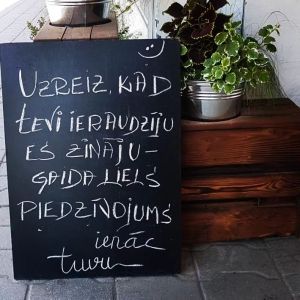 UZREIZ, KAD
TEVI IERAUDZĪJU
ES ZINĀJU-
GAIDA LIELS
PIEDZĪVOJUMS
ienāc